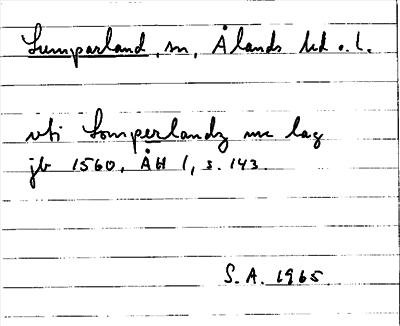 Lumparland, sn, Ålands hd o. l.
vti Lomperlandz ... lag
jb 1560, ÅH 1, s. 143.
S. A. 1965